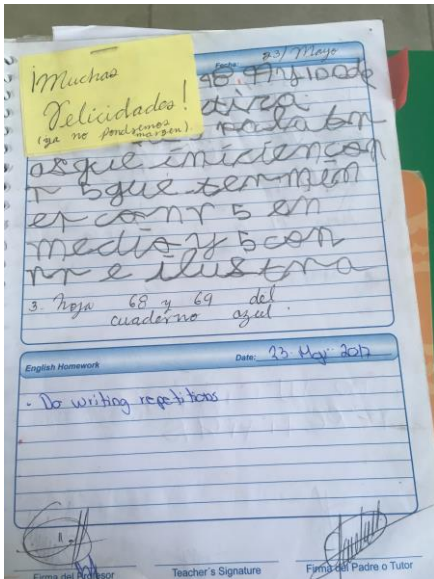 ¡Muchas
Felicidades!
(ya no pondremos
margen).
Fecha: 23/Mayo
48 49 y lo de
asque inicien con
r 5 que termin
er con r 5 en
medio y 5 con
rr e ilustra
3. hoja 68 y 69 del
cuaderno azul.
English Homework
Date: 23. May. 2012
- Do writing repetitions
Firma del Profesor
Teacher's Signature
Firma del Padre o Tutor